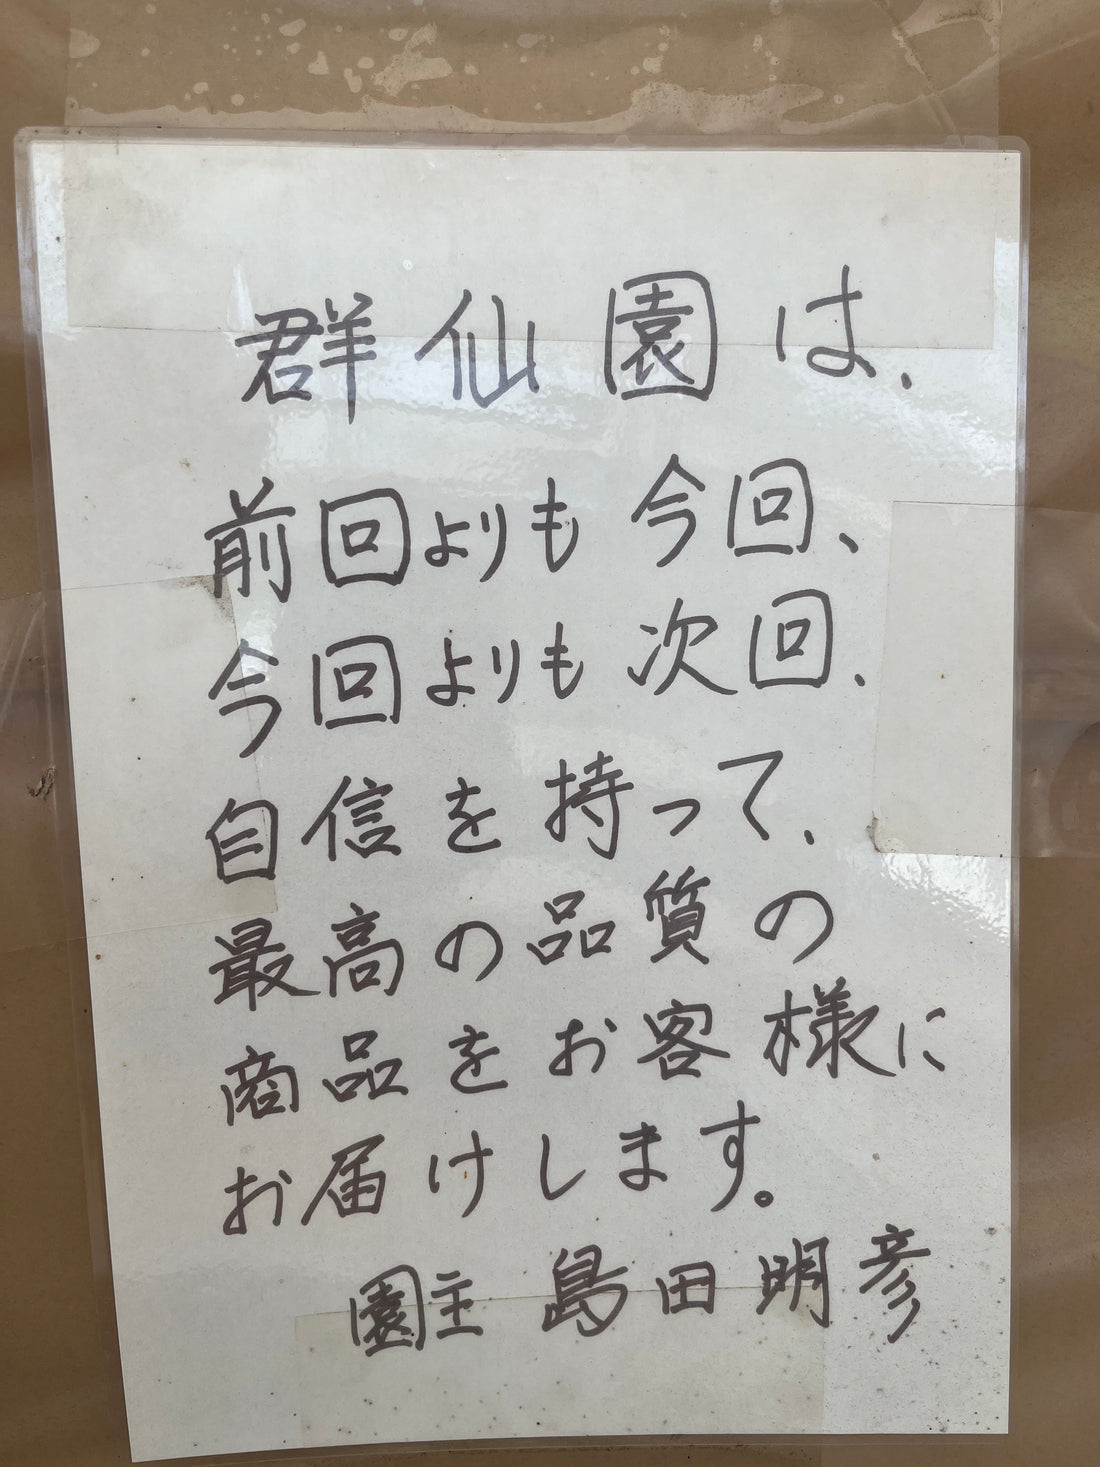 群仙園は、
前回よりも今回、
今回よりも次回、
自信を持って、
最高の品質の
商品をお客様に
お届けします。
園主 島田明彦